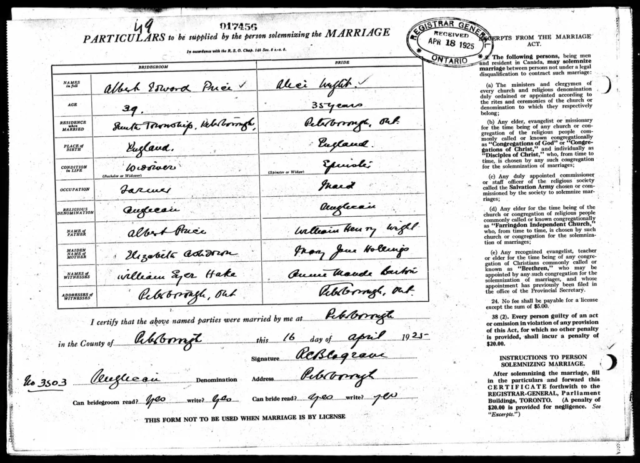 49
017456
PARTICULARS to be supplied by the person solemnizing the MARRIAGE
In accordance with the R.S.O. Chap.
REGISTRAR GENERAL
RECEIVED
APR 18 1925
ONTARIO
BRIDEGROOM
BRIDE
NAMES in full
Albert Edward Price
Alice Wight
AGE
39
35 years
RESIDENCE WHEN MARRIED
Smith Township, Peterborough,
Peterborough, Ont.
PLACE OF BIRTH
England
England
CONDITION IN LIFE
Widower
Spinster
(Bachelor or Widower)
(Spinster or Widow)
OCCUPATION
Farmer
Maid
RELIGIOUS DENOMINATION
Anglican
Anglican
NAME OF FATHER
Albert Price
William Henry Wight
MAIDEN NAME OF MOTHER
Elizabeth
Mary Jane Hollings
NAMES OF WITNESSES
William Hake
Annie Maude
ADDRESSES OF WITNESSES
Peterborough, Ont
Peterborough, Ont.
I certify that the above named parties were married by me at Peterborough
in the County of Peterborough this 16 day of April 1925
Signature
Address Peterborough
No 3503 Anglican Denomination
Can bridegroom read? yes write? yes Can bride read? yes write? yes
THIS FORM NOT TO BE USED WHEN MARRIAGE IS BY LICENSE
EXCERPTS FROM THE MARRIAGE
ACT.
2. The following persons, being men
and resident in Canada, may solemnize
marriage between persons not under a legal
disqualification to contract such marriage:
(a) The ministers and clergymen of
every church and religious denomination
duly ordained or appointed according to
the rites and ceremonies of the church or
denomination to which they respectively
belong;
(b) Any elder, evangelist or missionary
for the time being of any church or con-
gregation of the religious people com-
monly called or known congregationally
as "Congregations of God" or "Congre-
gations of Christ," and individually as
"Disciples of Christ," who, from time to
time, is chosen by any such congregation
for the solemnization of marriages;
(c) Any duly appointed commissioner
or staff officer of the religious society
called the Salvation Army chosen or com-
missioned by the society to solemnize mar-
riages;
(d) Any elder for the time being of any
church or congregation of religious people
commonly called or known as congregations
"Farringdon Independent Church,"
who, from time to time, is chosen by any such
church or congregation for the solemniza-
tion of marriages;
(e) Any recognized evangelist, teacher
or elder for the time being of any congre-
gation of Christians commonly called or
known as "Brethren," who may be
appointed by any such congregation for the
solemnization of marriages, and whose
appointment has previously been filed in
the office of the Provincial Secretary.
24. No fee shall be payable for a license
except the sum of $5.00.
38 (2). Every person guilty of an act
or omission in violation of any provision of
this Act, for which no other penalty
is provided, shall incur a penalty of
$20.00.
INSTRUCTIONS TO PERSON
SOLEMNIZING MARRIAGE.
After solemnizing the marriage, fill
in the particulars and forward this
CERTIFICATE forthwith to the
REGISTRAR-GENERAL, Parliament
Buildings, TORONTO. (A penalty of
$20.00 is provided for negligence. See
"Excerpts.")